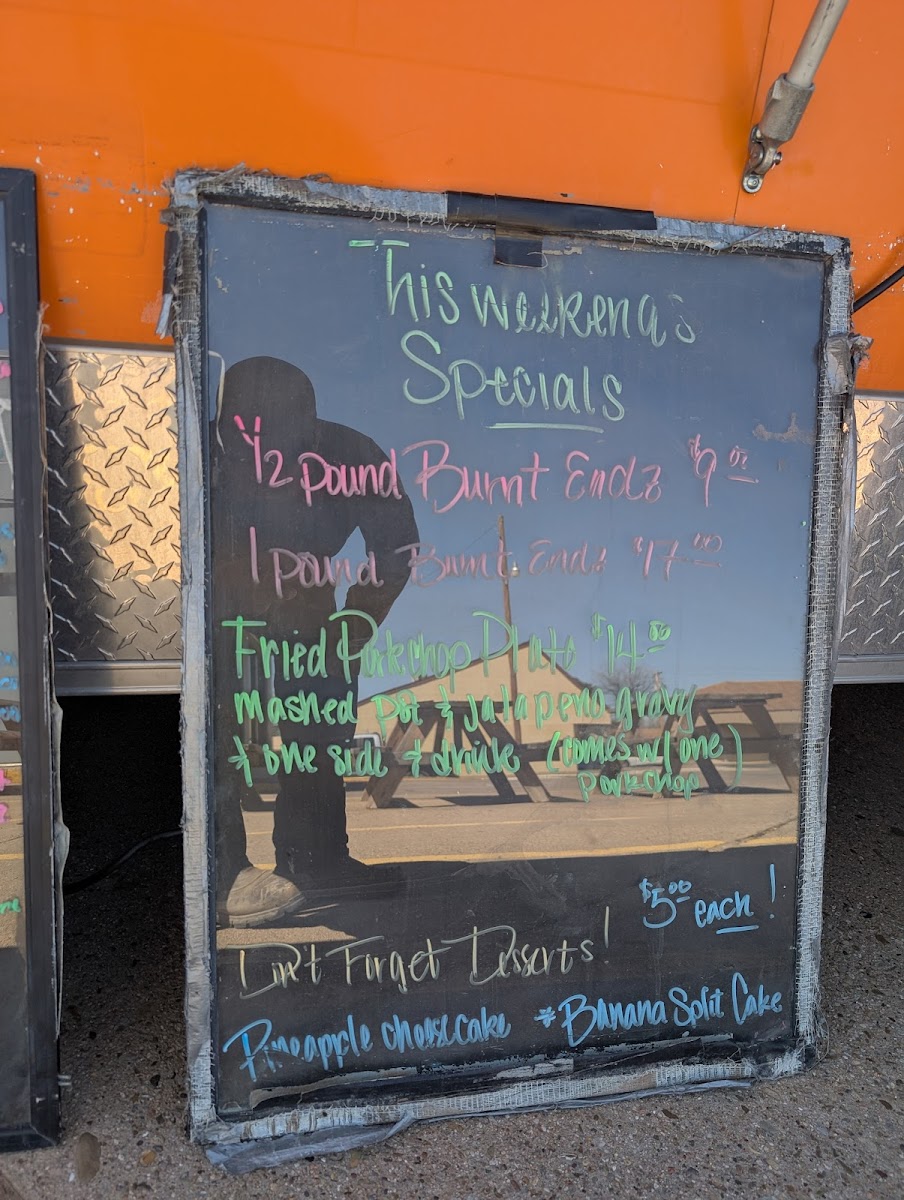 This weekend's
Specials
1/2 pound Burnt Endz $9.00
1 pound Burnt Endz $17.00
Fried Porkchop Plate $14.00
mashed pot & jalapeno gravy
& one side & drink (comes w/ one)
porkchop
$5.00 each!
Don't Forget Desserts!
Pineapple cheesecake * Banana Split Cake